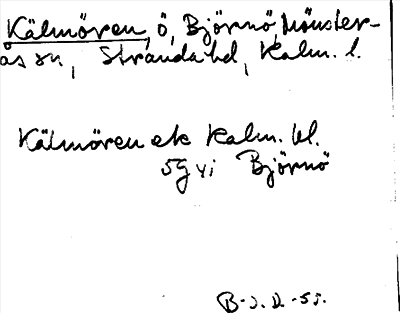 Kälmören, ö, Björnö, Mönster-
ås sn, Stranda hd, Kalm. l.
Kälmören ek Kalm. bl.
5g vi Björnö
B-J.D.-55.